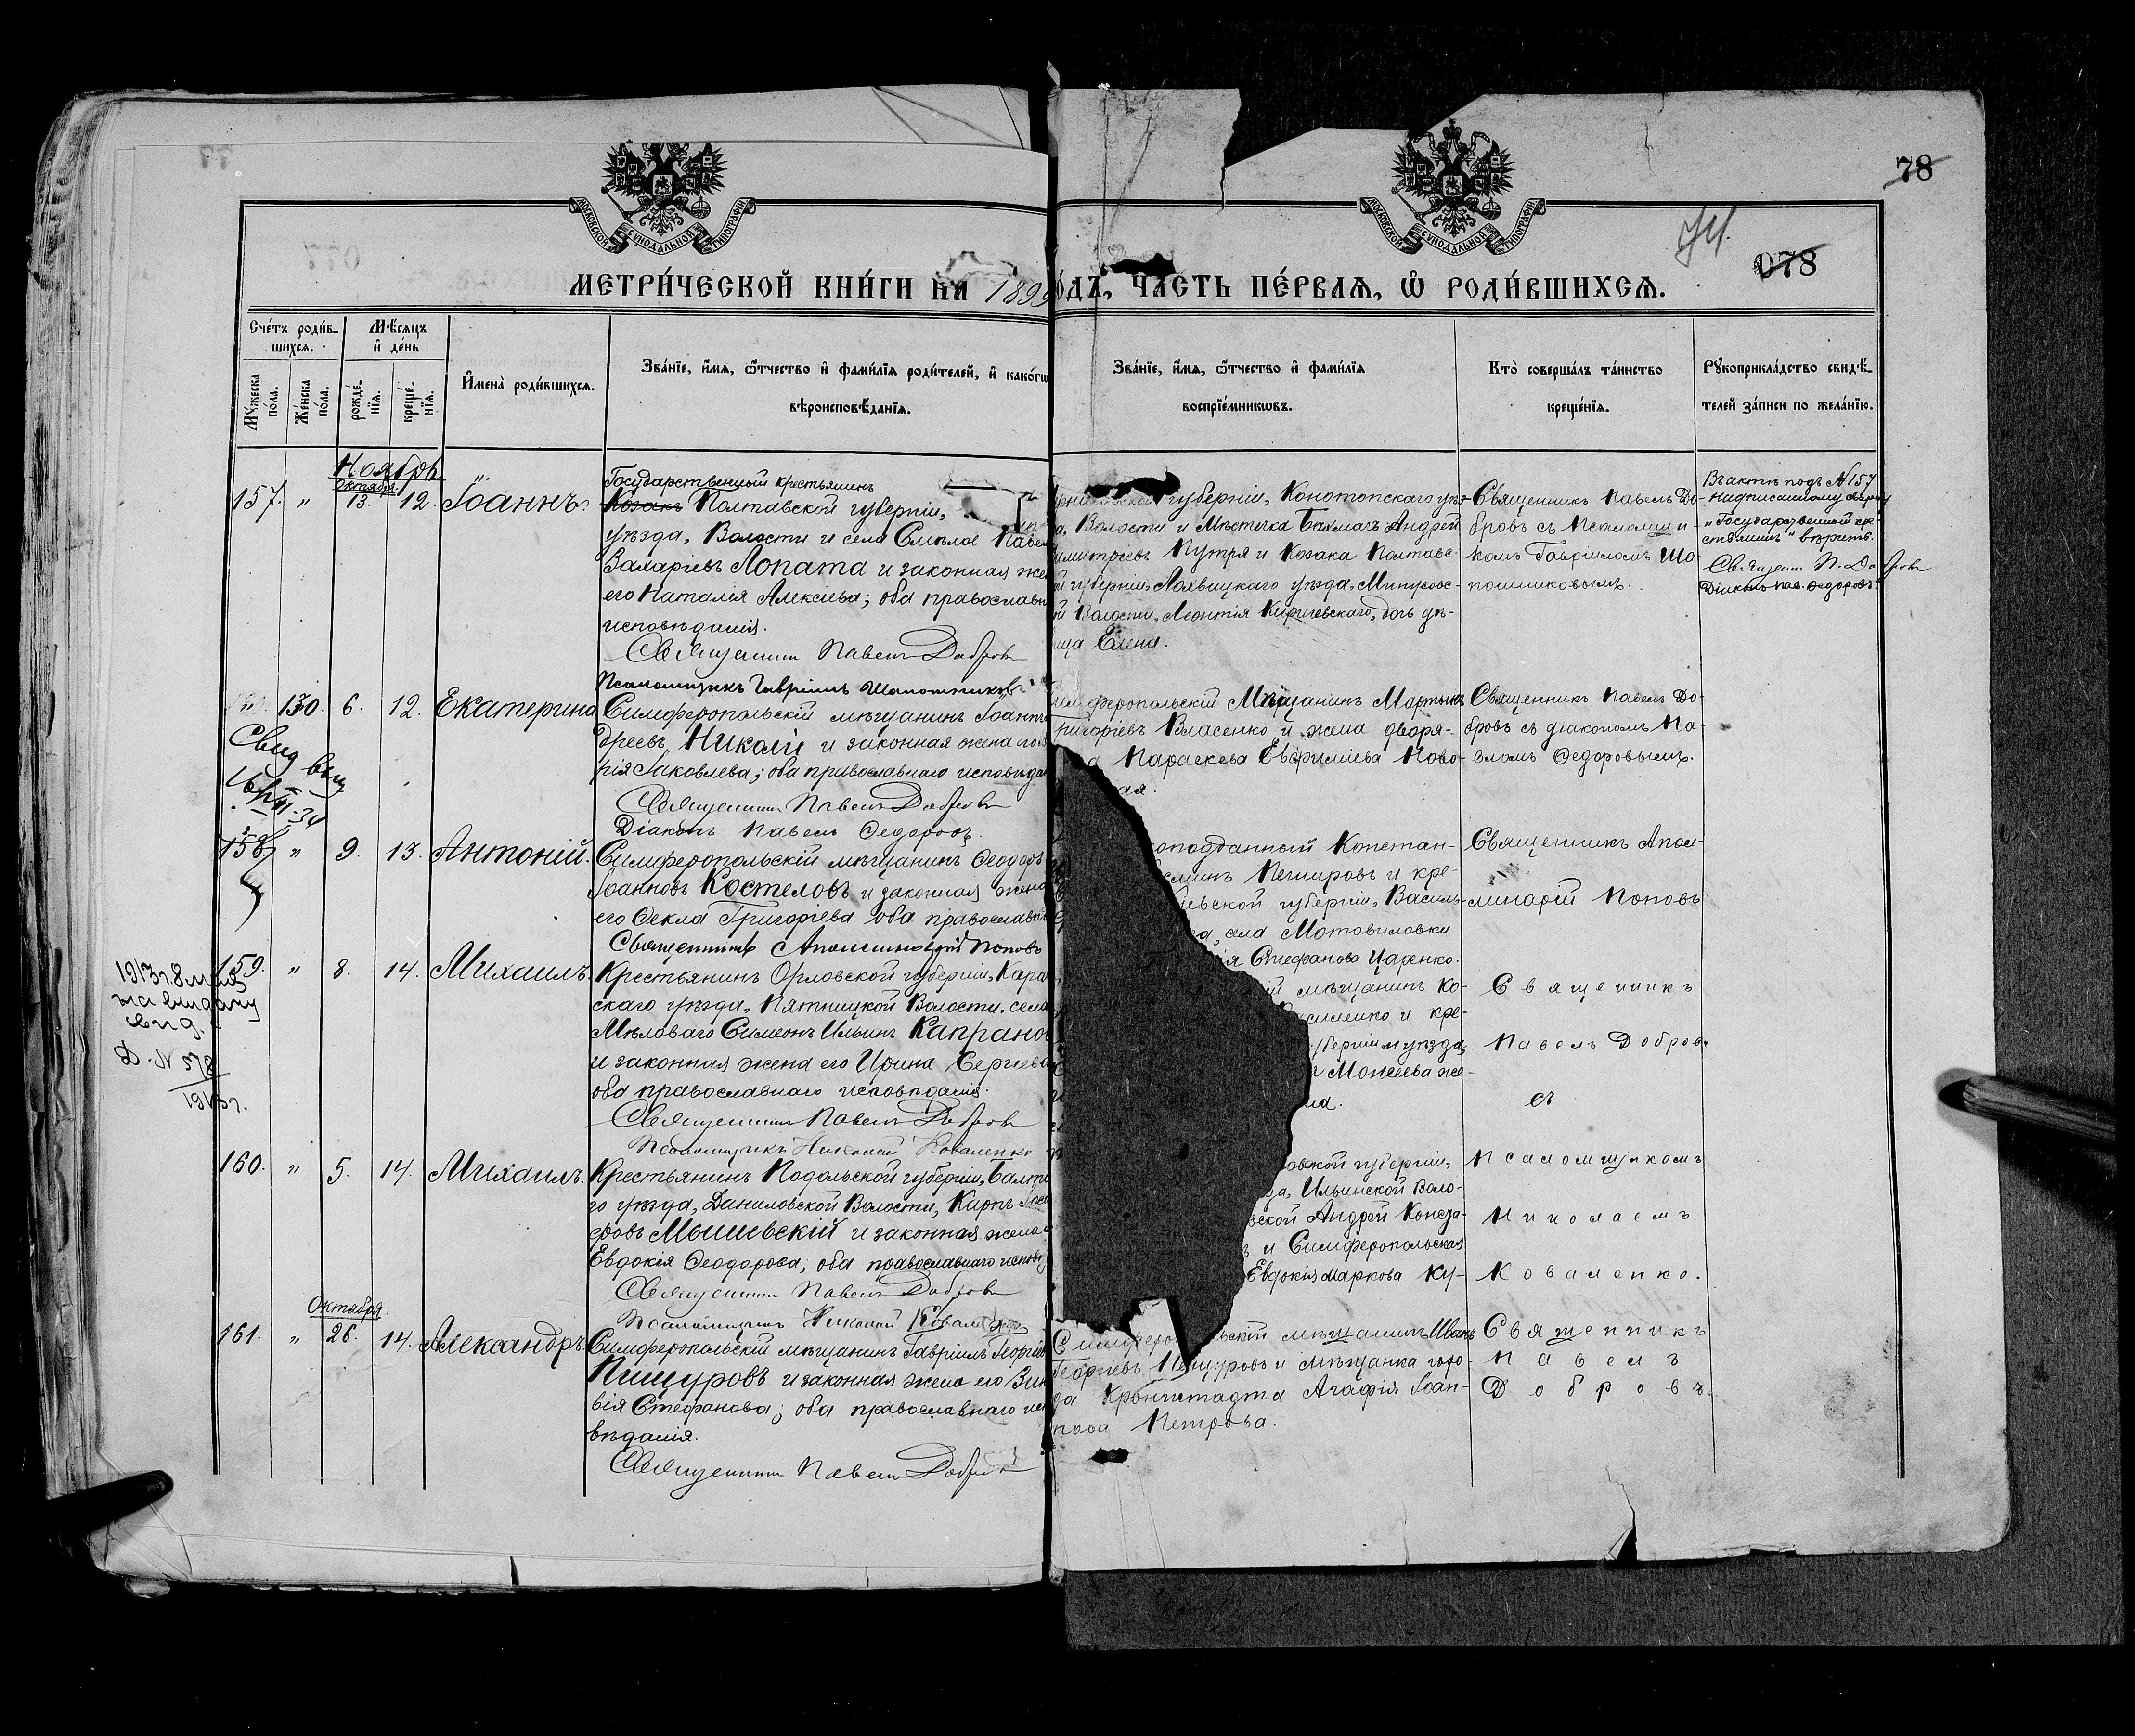 78
078
МОСКОВСКОЙ СѴНОДАЛЬНОЙ ТИПОГРАФІИ
МОСКОВСКОЙ СѴНОДАЛЬНОЙ ТИПОГРАФІИ
МЕТРИ́ЧЕСКОЙ КНИ́ГИ НА 1899
О́ДЪ, ЧА́СТЬ ПЕ́РВАѦ, Ѡ҆ РОДИ́ВШИХСѦ.
Сче́тъ роди́в-
шихсѧ.
Мѣ́сѧцъ
и҆ де́нь
Мꙋ́жеска
по́ла.
Же́нска
по́ла.
рожде́-
нїѧ.
креще́-
нїѧ.
И҆мена̀ роди́вшихсѧ.
Зва́нїе, и҆́мѧ, ѻ҆́тчество и҆ фами́лїѧ роди́телей, и҆ како́гѡ
вѣроисповѣ́данїѧ.
Зва́нїе, и҆́мѧ, ѻ҆́тчество и҆ фами́лїѧ
воспрїе́мникѡвъ.
Кто̀ соверша́лъ та́инство
креще́нїѧ.
Рꙋкоприкла́дство свидѣ́-
телей за́писи по жела́нїю.
Ноябрь
Октября
157. " 13. 12. Іоаннъ.
Государственный крестьянинъ
Козакъ Полтавской губерніи,
уѣзда, Волости и села Смѣлое Павел
Захаріевъ Лопата и законная же
его Наталія Алексіева; оба православн
исповѣданія.
Священникъ Павелъ Добровъ
Псаломщикъ Гавріилъ Шапошниковъ
губерніи, Конотопскаго уѣз-
а, Волости и Мѣстечка Бахмачъ Андрей
имитріевъ Путря и Козака Полтавс-
й губерніи, Лохвицкаго уѣзда,
й Волости, Леонтія дочь дѣ-
ица Елена.
Священникъ Павелъ До-
бровъ съ Псаломщи-
комъ Гавріиломъ Ша-
пошниковымъ.
Въ актѣ подъ № 157
надписанному сверху
"Государственный кре-
стьянинъ" вѣрить.
Священ. П. Добровъ
Діаконъ Пав. Ѳедоровъ.
" 130. 6. 12. Екатерина
Симферопольскій мѣщанинъ Іоаннъ
дреевъ Николи и законная жена
рія Іаковлева; оба православнаго исповѣда
Священникъ Павелъ Добровъ
Діаконъ Павелъ Ѳедоровъ.
имферопольскій Мѣщанинъ Мартынъ
Григоріевъ Власенко и жена дворя-
а Параскева Евфиміева Ново-
ая.
Священникъ Павелъ До-
бровъ съ діакономъ Па-
вломъ Ѳедоровымъ.
Свид выд
158. " 9. 13. Антоній.
Симферопольскій мѣщанинъ Ѳеодоръ
Іоанновъ Костеловъ и законная жена
его Ѳекла Григоріева оба православн
Священникъ Аполлинарій Поповъ
оподданный Констан-
Пешировъ и кре-
іевской губерніи, Василь-
да, села Мотовиловки
ія Стефанова Царенко.
Священникъ Апол-
линарій Поповъ
1913г. 8 мая
на выдачу
свид.
Д. № 578
1913г.
159. " 8. 14. Михаилъ.
Крестьянинъ Орловской губерніи, Кара
скаго уѣзда, Пятницкой Волости, села
Мѣловаго Симеонъ Ильинъ Капрано
и законная жена его Ирина Сергіева
оба православнаго исповѣданія.
Священникъ Павелъ Добровъ
Псаломщикъ Николай Коваленко
ій мѣщанинъ Ко-
силенко и кре-
уберніи и уѣзда,
Моисеева же-
на.
Священникъ
Павелъ Добровъ
съ
160. " 5. 14. Михаилъ.
Крестьянинъ Подольской губерніи, Балт
го уѣзда, Даниловской Волости, Карпъ
фовъ Мышевскій и законная жена
Евдокія Ѳеодорова; оба православнаго исповѣ
Священникъ Павелъ Добровъ
Псаломщикъ Николай Коваленко
овской губерніи,
да, Ильинской Воло-
вской Андрей Конста-
ъ и Симферопольская
Евдокія Маркова Ку-
Псаломщикомъ
Николаемъ
Коваленко.
Октября
161. " 26. 14. Александръ.
Симферопольскій мѣщанинъ Гавріилъ Георгіе
Пищуровъ и законная жена его Зин
вія Стефанова; оба православнаго исп
вѣданія.
Священникъ Павелъ Добровъ
Симферо льскій мѣщанинъ Иванъ
Георгіевъ Пищуровъ и мѣщанка горо-
да Кронштадта Агафія Іоан-
нова Петрова.
Священникъ
Павелъ
Добровъ.